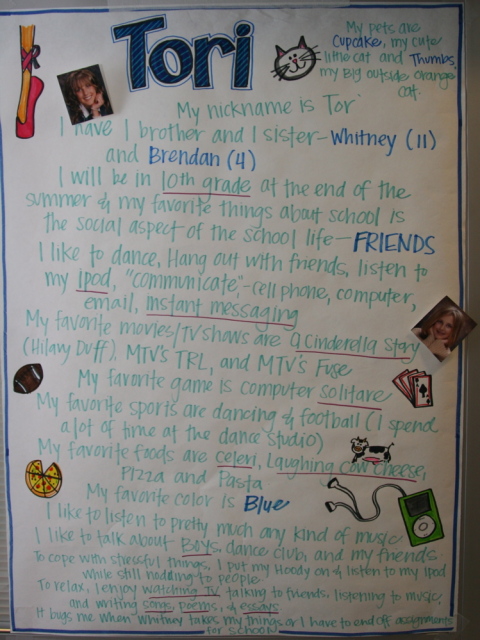 Tori
My pets are
Cupcake, my cute
little cat and Thumbs,
my Big outside orange
cat.
My nickname is Tor
I have 1 brother and 1 sister-Whitney (11)
and Brendan (4)
I will be in 10th grade at the end of the
summer & my favorite things about school is
the social aspect of the school life-FRIENDS
I like to dance, Hang out with friends, listen to
my ipod, "communicate,"-cell phone, computer,
email, instant messaging
My favorite movies/TV shows are a Cinderella Story
(Hilary Duff), MTV's TRL, and MTV's Fuse
My favorite game is computer Solitare
My favorite sports are dancing & football (I spend
a lot of time at the dance studio)
My favorite foods are celeri, Laughing cow cheese,
Pizza and Pasta
My favorite color is Blue
I like to listen to pretty much any kind of music
I like to talk about Boys, dance club, and my friends
To cope with stressful things, I put my Hoody on & listen to my ipod
while still nodding to people
To relax, I enjoy watching TV, talking to friends, listening to music,
and writing songs, poems, & essays
It bugs me when Whitney takes my things or I have to end off assignments
for school